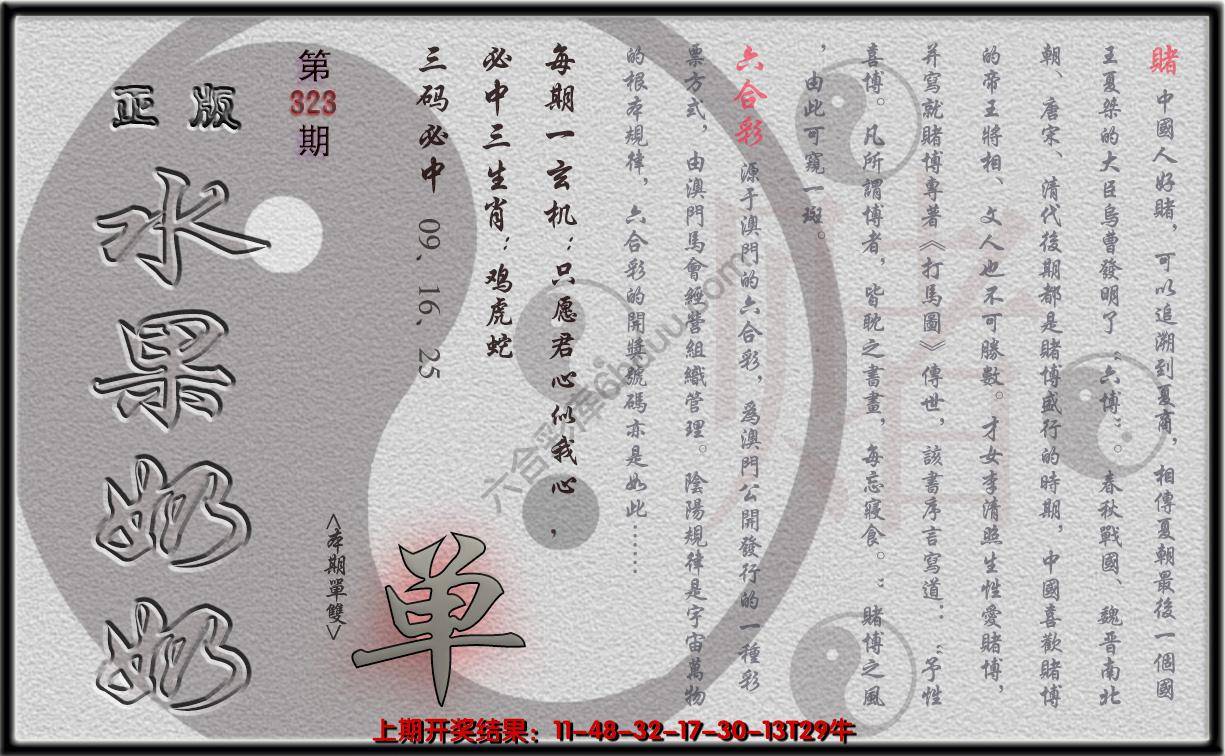 賭 中國人好賭，可以追溯到夏商，相傳夏朝最後一個國
王夏桀的大臣烏曹發明了“六博”。春秋戰國、魏晋南北
朝、唐宋、清代後期都是賭博盛行的時期，中國喜歡賭博
的帝王將相、文人也不可勝數。才女李清照生性愛賭博，
并寫就賭博專著《打馬圖》傳世，該書序言寫道：“予性
喜博。凡所謂博者，皆耽之書畫，每忘寢食。”賭博之風
，由此可窺一斑。
六合彩 源于澳門的六合彩，爲澳門公開發行的一種彩
票方式，由澳門馬會經營組織管理。陰陽規律是宇宙萬物
的根本規律，六合彩的開獎號碼亦是如此……
每期一玄机：只愿君心似我心，
必中三生肖：鸡虎蛇
三码必中 09、16、25
第323期
正版
水果奶奶
<本期單雙>
单
六合彩库6huuu.com
上期开奖结果：11-48-32-17-30-13T29牛
赌